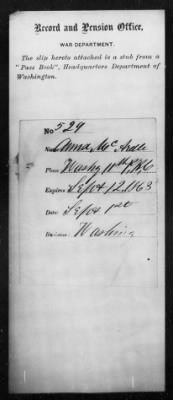 Record and Pension Office,
WAR DEPARTMENT.
The slip hereto attached is a stub from a
"Pass Book", Headquarters Department of
Washington.
No 529
Name Anna McArdle
Place Washg
Expires Sept 12, 1863
Date Sept 1st
Washing